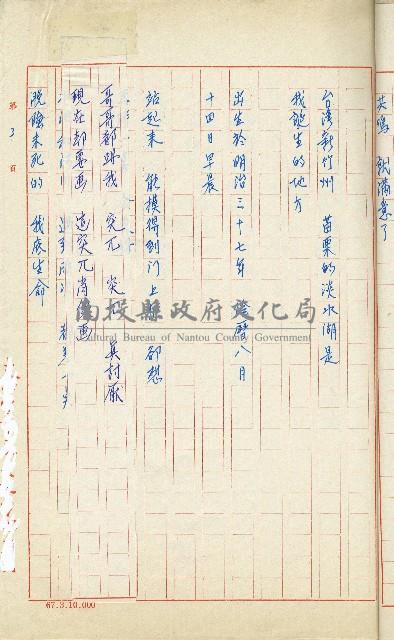 共鳴 就滿意了
台灣新竹州 苗栗的淡水湖是
我誕生的地方
出生於明治三十七年 陰曆八月
十四日早晨
站起來 能摸得到門上縣 卻想
哥哥都踢我 突兀 突兀 真討厭
現在卻要畫 這突兀肖像畫
脫離未死的 我底生命
第 3 頁
67.3.10.000
南投縣政府文化局
Cultural Bureau of Nantou County Government